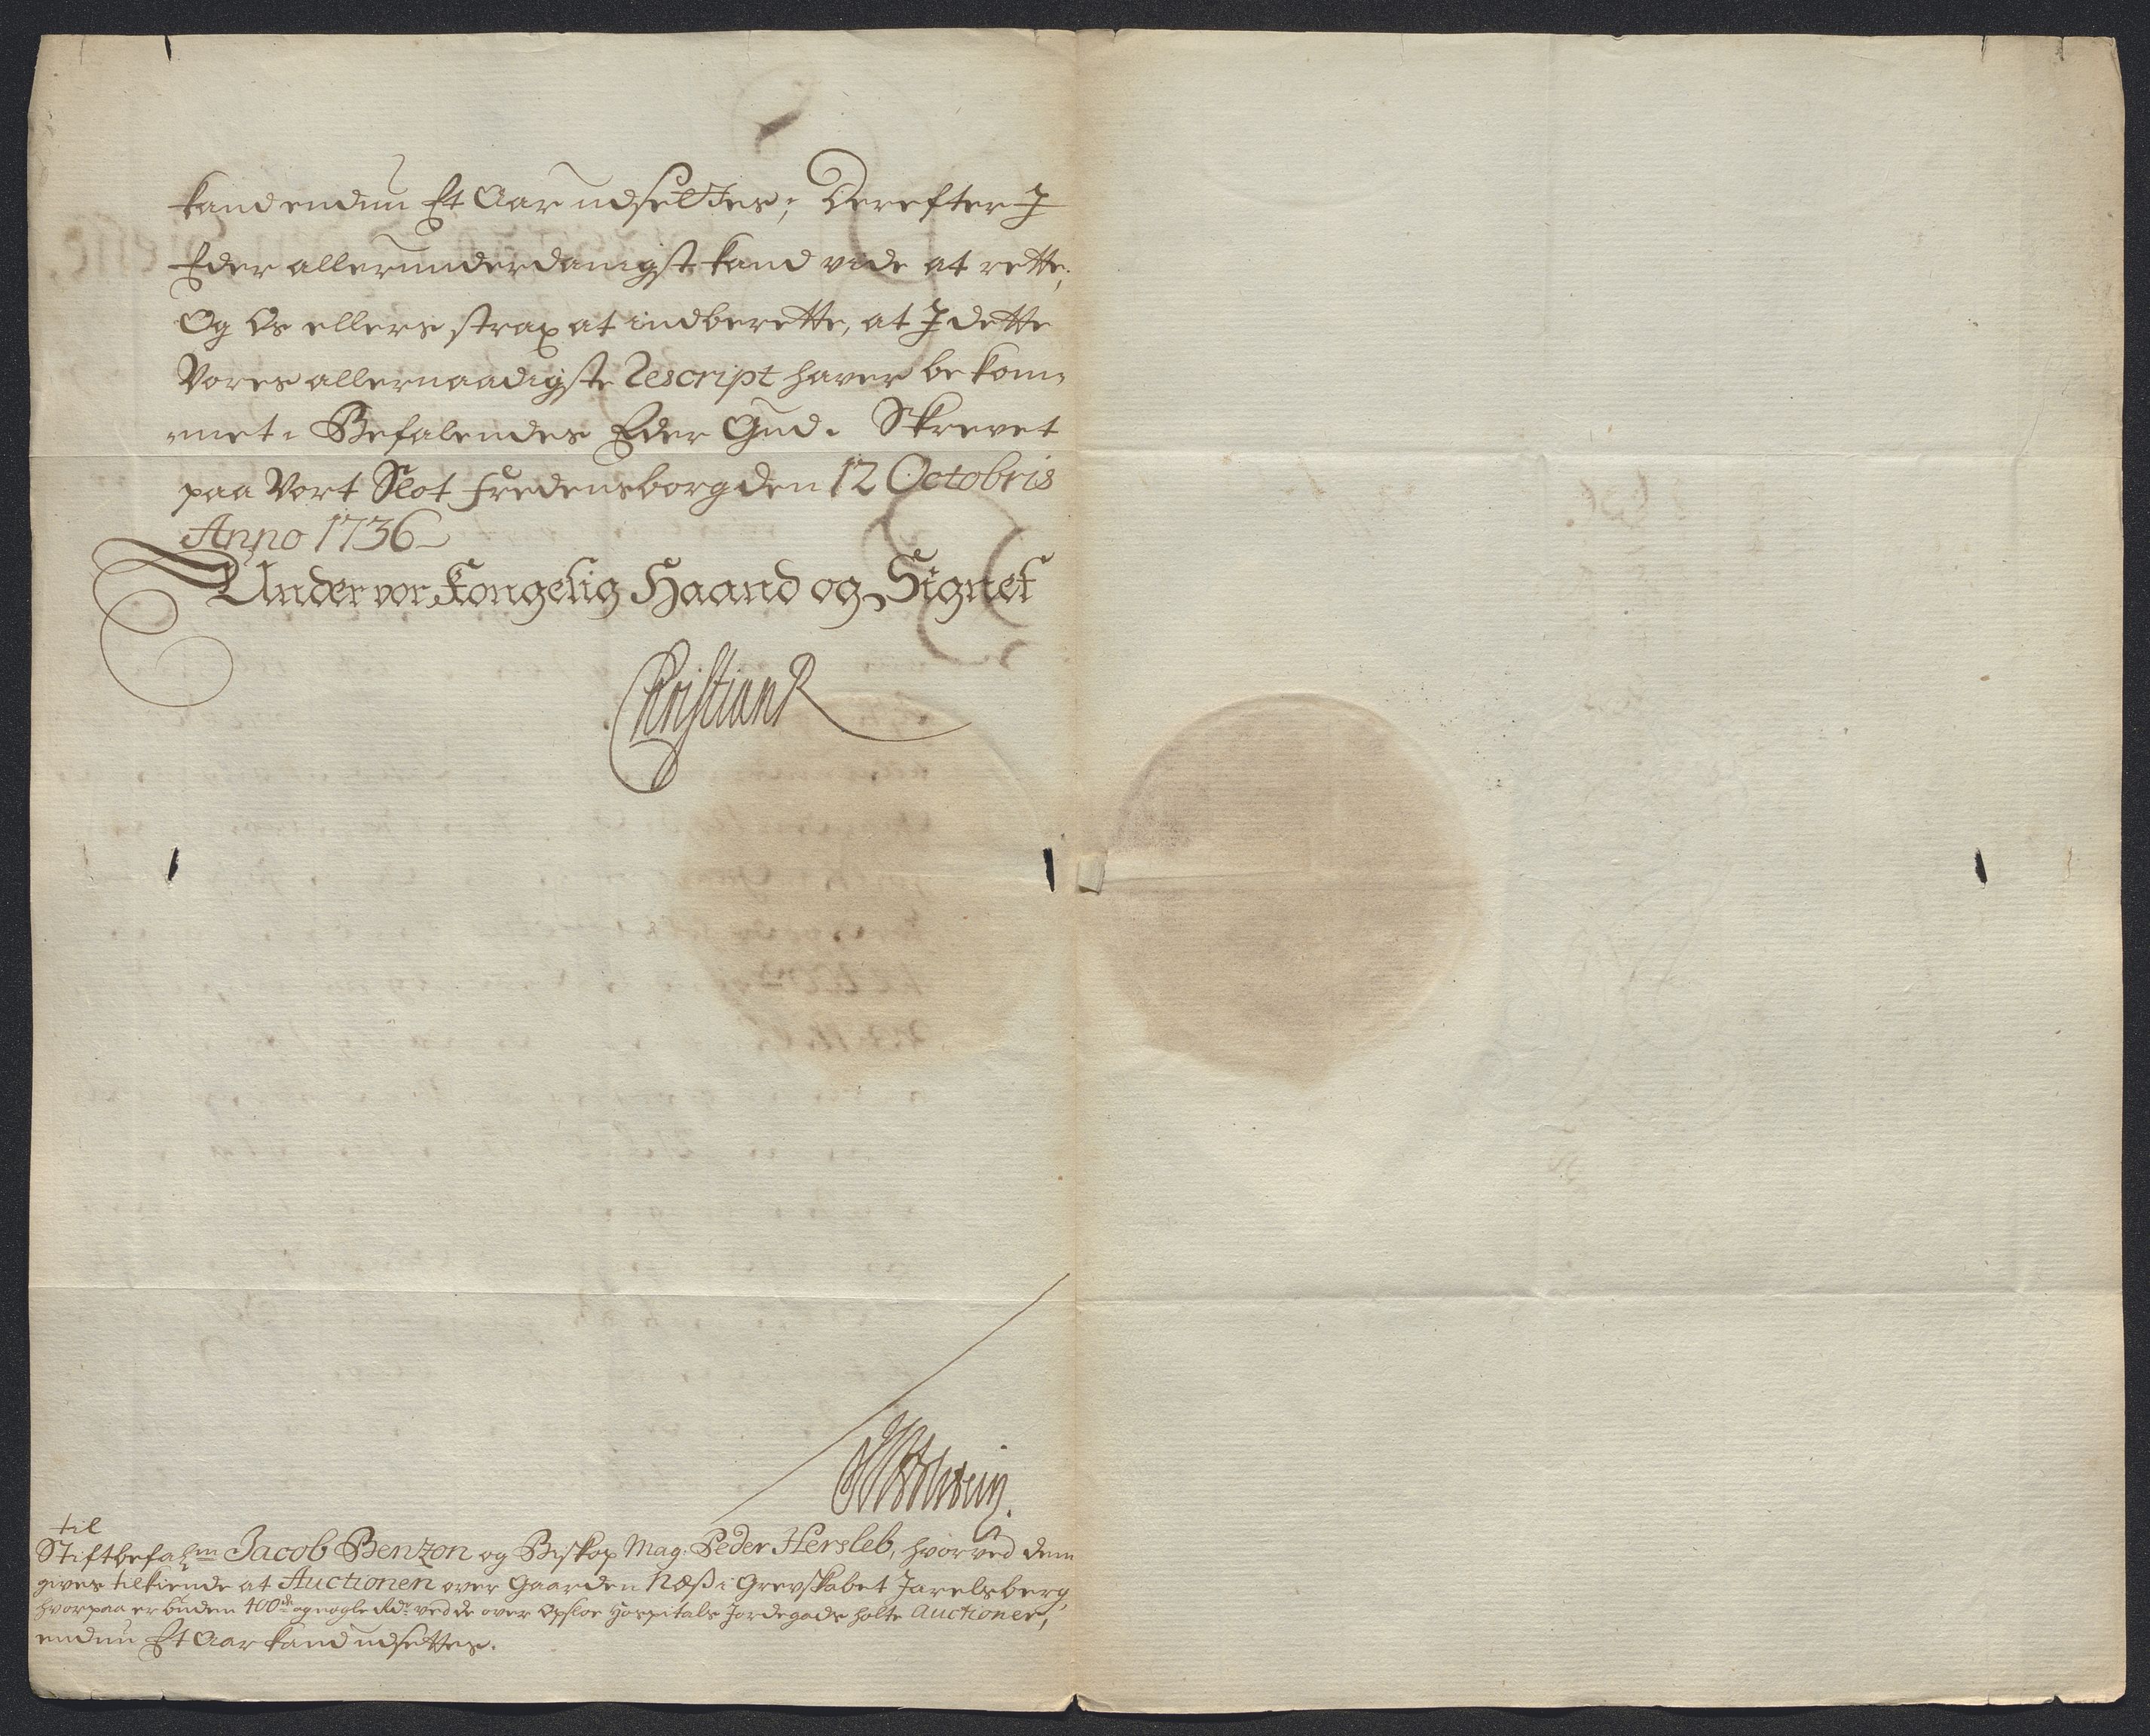 kand endnu Et Aar udsettes; Derefter I
Eder allerunderdanigst kand vide at rette,
Og Os ellers strax at indberette, at I dette
Vores allernaadigste Rescript haver bekom-
met. Befalendes Eder Gud. Skrevet
paa Vort Slot Fredensborg den 12 Octobris
Anno 1736
Under vor Kongelig Haand og Signet
Christian R
til
Stiftbefalm Jacob Benzon og Biskop Mag. Peder Hersleb, hvorved dem
gives tilkiende at Auctionen over Gaarden Næss i Grevskabet Jarelsberg,
hvorpaa er buden 400 og nogle Rdr ved de over Opsloe Hospitals Jordegods holte Auctioner,
endnu Et Aar kand udsettes.